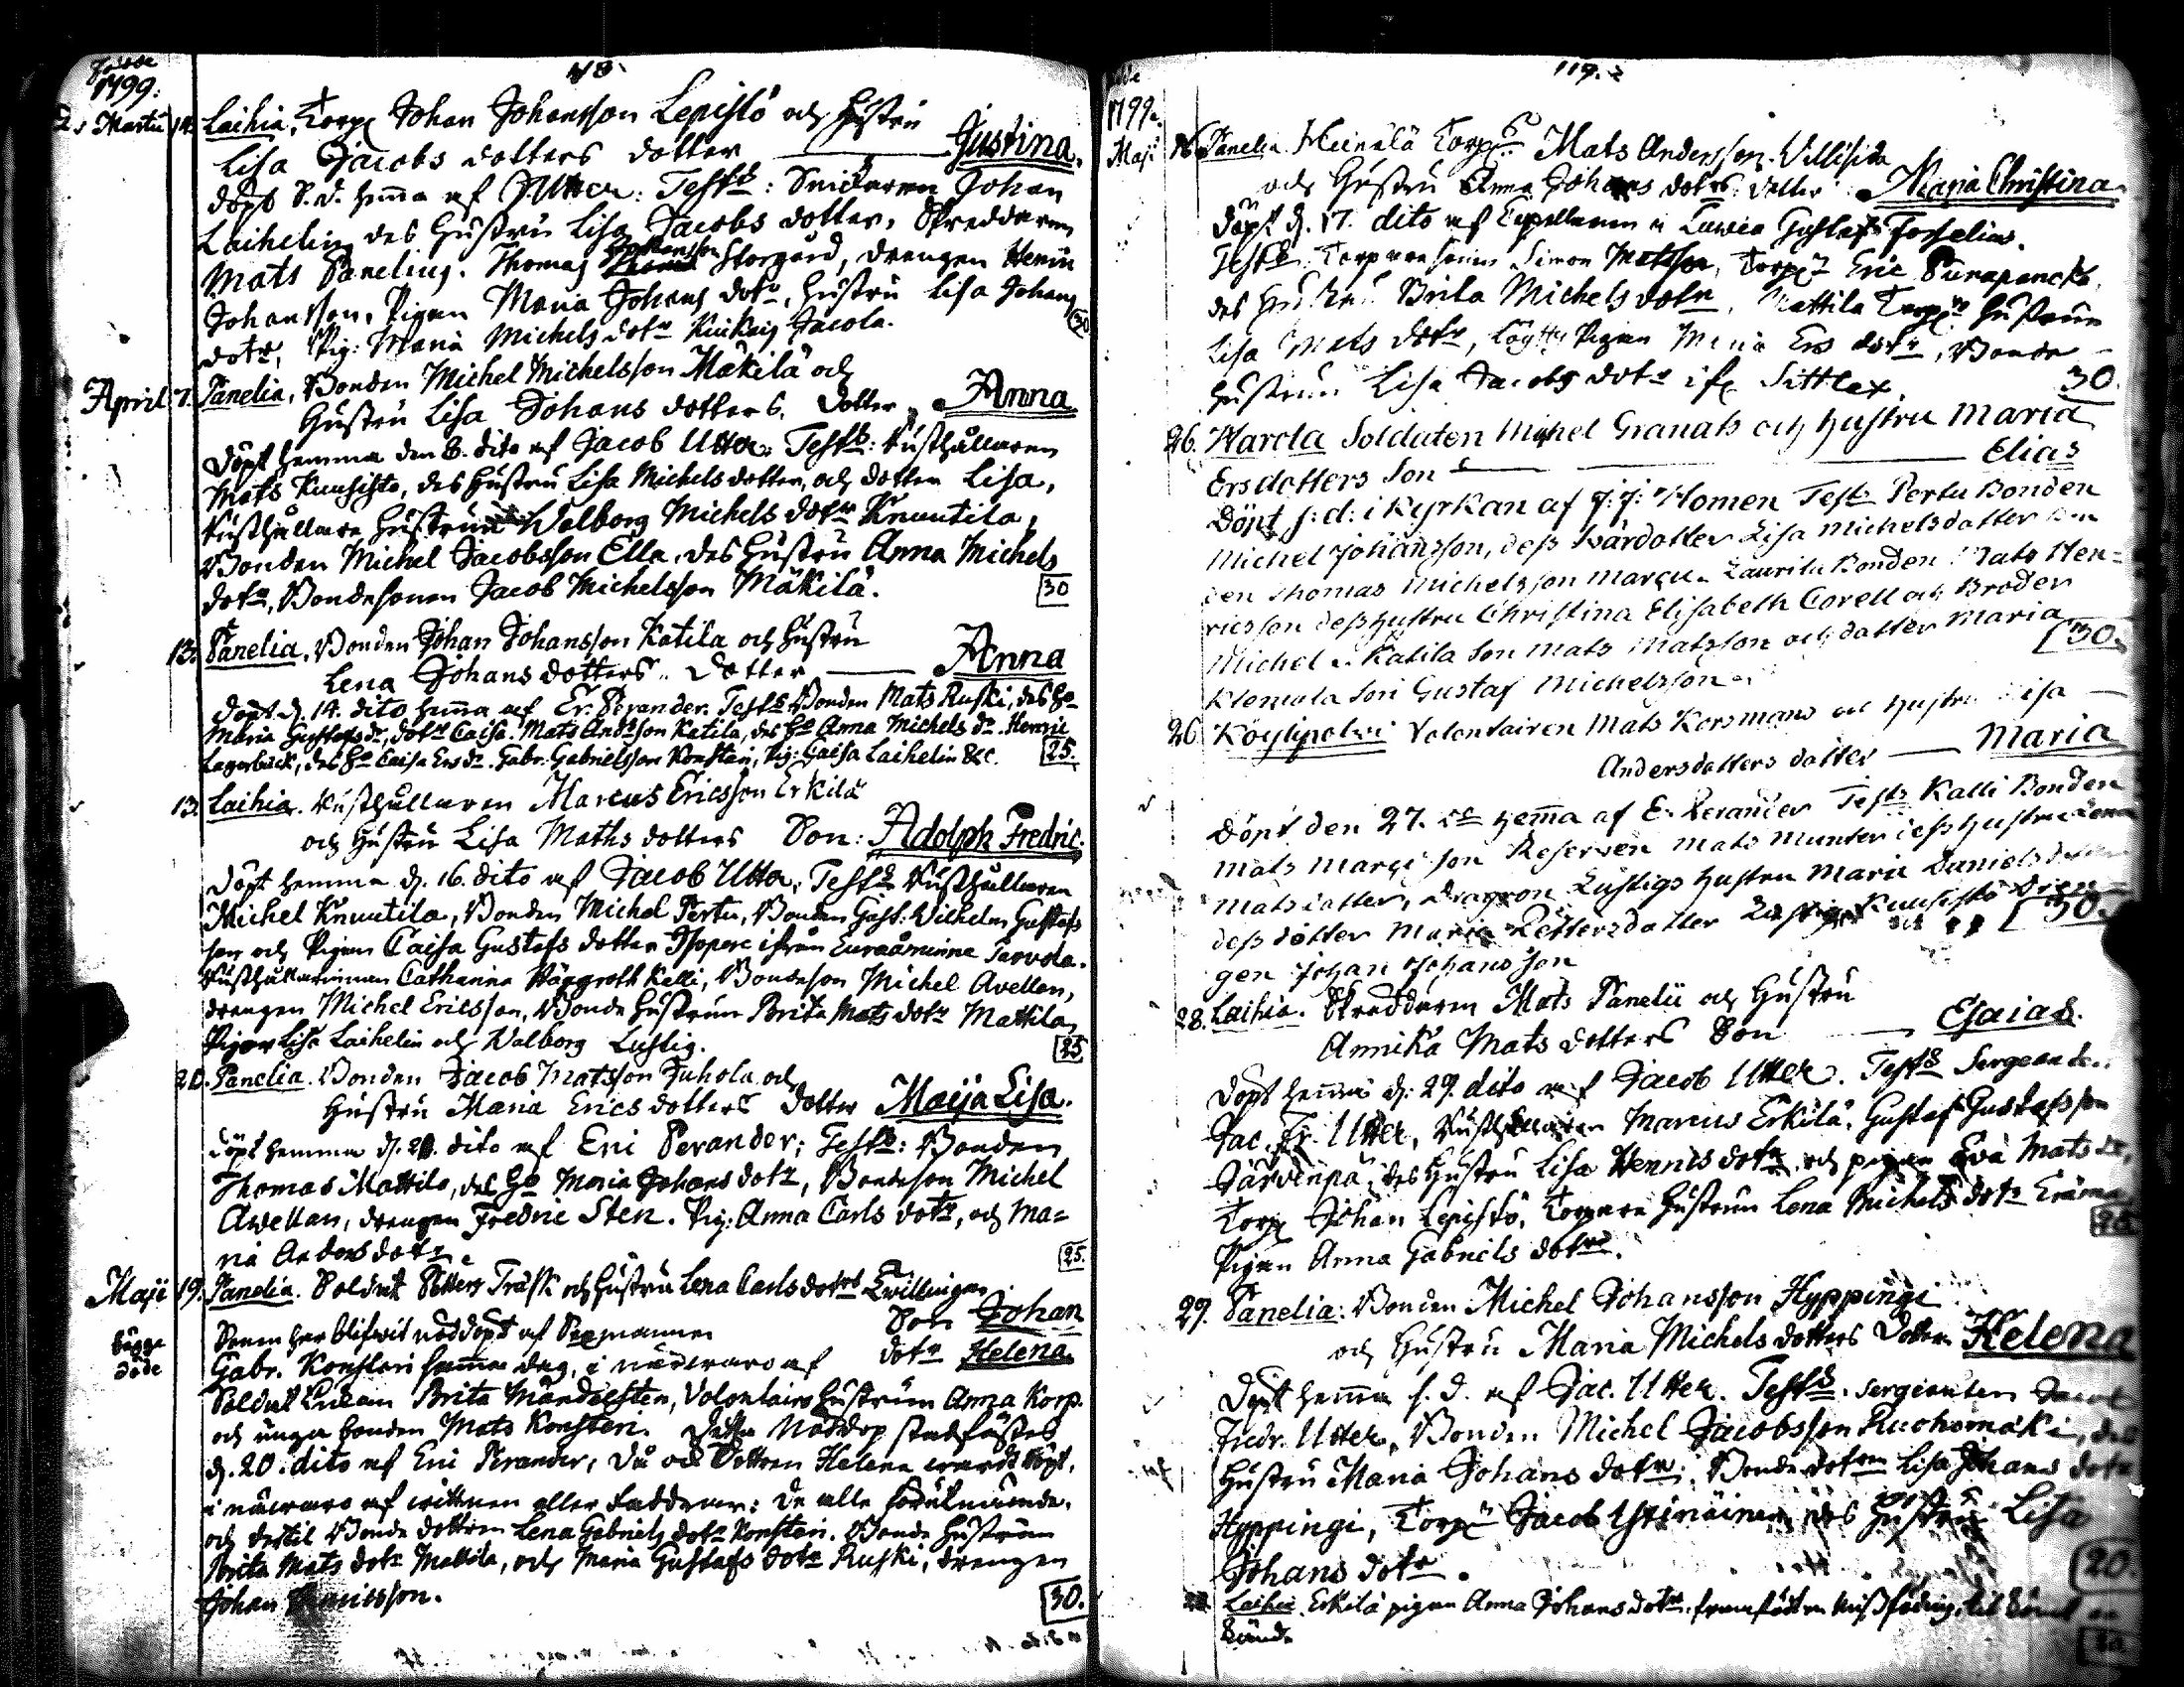 118.
Födde
1799.
Martii 14. Laihia, Torp: Johan Johansson Lepistö och Hustru
Lisa Jacobs dotters dotter Justina.
döpt S. d. hemma af J. Utter: Test: Snickaren Johan
Laihelin des Hustru Lisa Jacobs dotter, Skreddaren
Mats Panelius. Thomas Storgård, drengen Henric
Johansson, Pigan Maria Johans dotr, Hustru Lisa Johans
dotr, Pig: Maria Michels dotr Jacola. 30
April 7. Panelia, Bonden Michel Michelsson Mäkilä och
Hustru Lisa Johans dotters Dotter Anna
döpt hemma den 8. dito af Jacob Utter. Test: Rusthållaren
Mats Kuusisto, des Hustru Lisa Michels dotter, och dotter Lisa,
Rusthållare Hustrun Walborg Michels dotr Knuutila,
Bonden Michel Jacobsson Ella, des Hustru Anna Michels
dotr, Bondesonen Jacob Michelsson Mäkilä. 30
13. Panelia, Bonden Johan Johansson Katila och Hustru
Lena Johans dotters Dotter Anna
döpt d. 14. dito hema af Er. Perander. Test Bonden Mats Ruski, des H
Maria Gustafs dr, dotr Caisa. Mats Andsson Katila, des H Anna Michels dr. Henric
Lagerbäck, des H Caisa Ers dr. Gabr. Gabrielsson Konsteri, Pig: Caisa Laihelin &c. 25.
13. Laihia. Rusthållaren Marcus Ericsson Erkilä
och Hustru Lisa Maths dotters Son: Adolph Fredric.
döpt hemma d. 16. dito af Jacob Utter; Test Rusthållaren
Michel Knuutila, Bonden Michel Pertu, Bonden Gust: Wilhelm Gustafs
son och Pigan Caisa Gustafs dotter ifrån Euraåminne
Rusthållarinnan Catharina Häggroth Kelli, Bondeson Michel Avellan,
drengen Michel Ericsson, Bonde Hustrun Brita Mats dotr Mattila,
Pigor Lisa Laihelin och Walborg Lustig. 25
20. Panelia. Bonden Jacob Matsson Juhola och
Hustru Maria Erics dotters dotter Maija Lisa.
döpt hemma d. dito af Eric Perander; Test: Bonden
Thomas Mattila, des H Maria Johans dotr, Bondeson Michel
Awellan, drengen Fredric Sten. Pig: Anna Carls dotr, och Ma=
ria Anders dotr. 25.
Maji 19. Panelia. Soldat Petter Träsk och Hustru Lena Carls dotrs Twillingar
Sonen har blifwit nöddöpt af Son Johan
bägge döde
Gabr. Konsteri samma dag, i närwaro af dotr Helena
Soldat Enkan Brita Mandelsten, Volontairs Hustrun Anna Korp.
och unga bonden Mats Konsteri. Detta Nöddop stadfästes
d. 20. dito af Eric Perander, då och Dottren Helena wardt döpt,
i närwaro af wittnen eller Faddrar: de alle förutnämde,
och dertil Bonde dottren Lena Gabriels dotr Konsteri. Bonde Hustrun
Brita Mats dotr Mattila, och Maria Gustafs dotr Ruski, drengen
Johan Henricsson. 30.
119.
1799.
Maji 16. Panelia Heinilä Torp Mats Andersson
och Hustru Anna Johans dotrs dotter Maria Christina
döpt d. 17. dito af Capellanen i Luvia Gustaf Fosselius.
Test Torparesonen Simon Matsson, Torp Eric
des Hustru Brita Michels dotr, Mattila Torp Hustrun
Lisa Mats dotr, Löytty Pigan Maria Ers dotr, Bonde
Hustrun Lisa Jacobs dotr 30.
26. Harola Soldaten Michel Granats och hustru Maria
Ersdotters Son Elias
Döpt s: d: i Kyrkan af J: J: Homen Test Pertu Bonden
Michel Johansson, dess Swärdotter Lisa Michelsdotter
Thomas Michelsson Laurila Bonden Mats Hen=
ricsson dess hustru Christina Elisabeth Corell och Broder
Michel Katila Son Mats Matsson och dotter Maria
Klemola Son Gustaf Michelsson 30.
26. Köyliypolvi Volontairen Mats Korsmans och hustru Lisa
Andersdotters dotter Maria
Döpt den 27. hema af E. Perander Test Kalli Bonden
Mats Marc:son Reserven Mats Munter dess hustru Lena
Mats dotter, Dragron Lustigs hustru Maria Daniels dotter
dess dotter Maria Pettersdotter Kuusisto Dren
gen Johan Johansson 30.
28. Laihia. Skreddaren Mats Panelii och Hustru
Annika Mats dotters Son Esaias.
döpt hemma d: 29. dito af Jacob Utter. Test Sergeanten
Jac. Fr. Utter, Rusthållaren Marcus Erkilä, Gustaf Gustafsson
Järvenpä, des Hustru Lisa Henrics dotr, och pigan Eva Mats dr,
Torp Johan Lepistö, Torpare Hustrun Lena Michels dotr
Pigan Anna Gabriels dotr.
29. Panelia: Bonden Michel Johansson Hyppingi
och Hustru Maria Michels dotters Dotter Helena
Döpt hema s. d. af Jac. Utter. Test. Sergeanten Jacob
Fredr. Utter, Bonden Michel Jacobsson Ruohomäki, des
Hustru Maria Johans dotr; Bonde dotren Lisa Johans dotr
Hyppingi, Torp Jacob des Hustru Lisa
Johans dotr. 20.
Laihia Erkilä pigan Anna Johans dotr